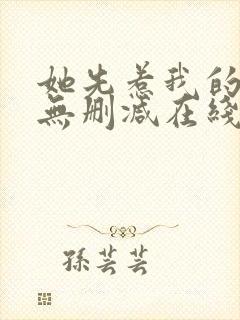 她先惹我的
無刪減在綫
孫芸芸